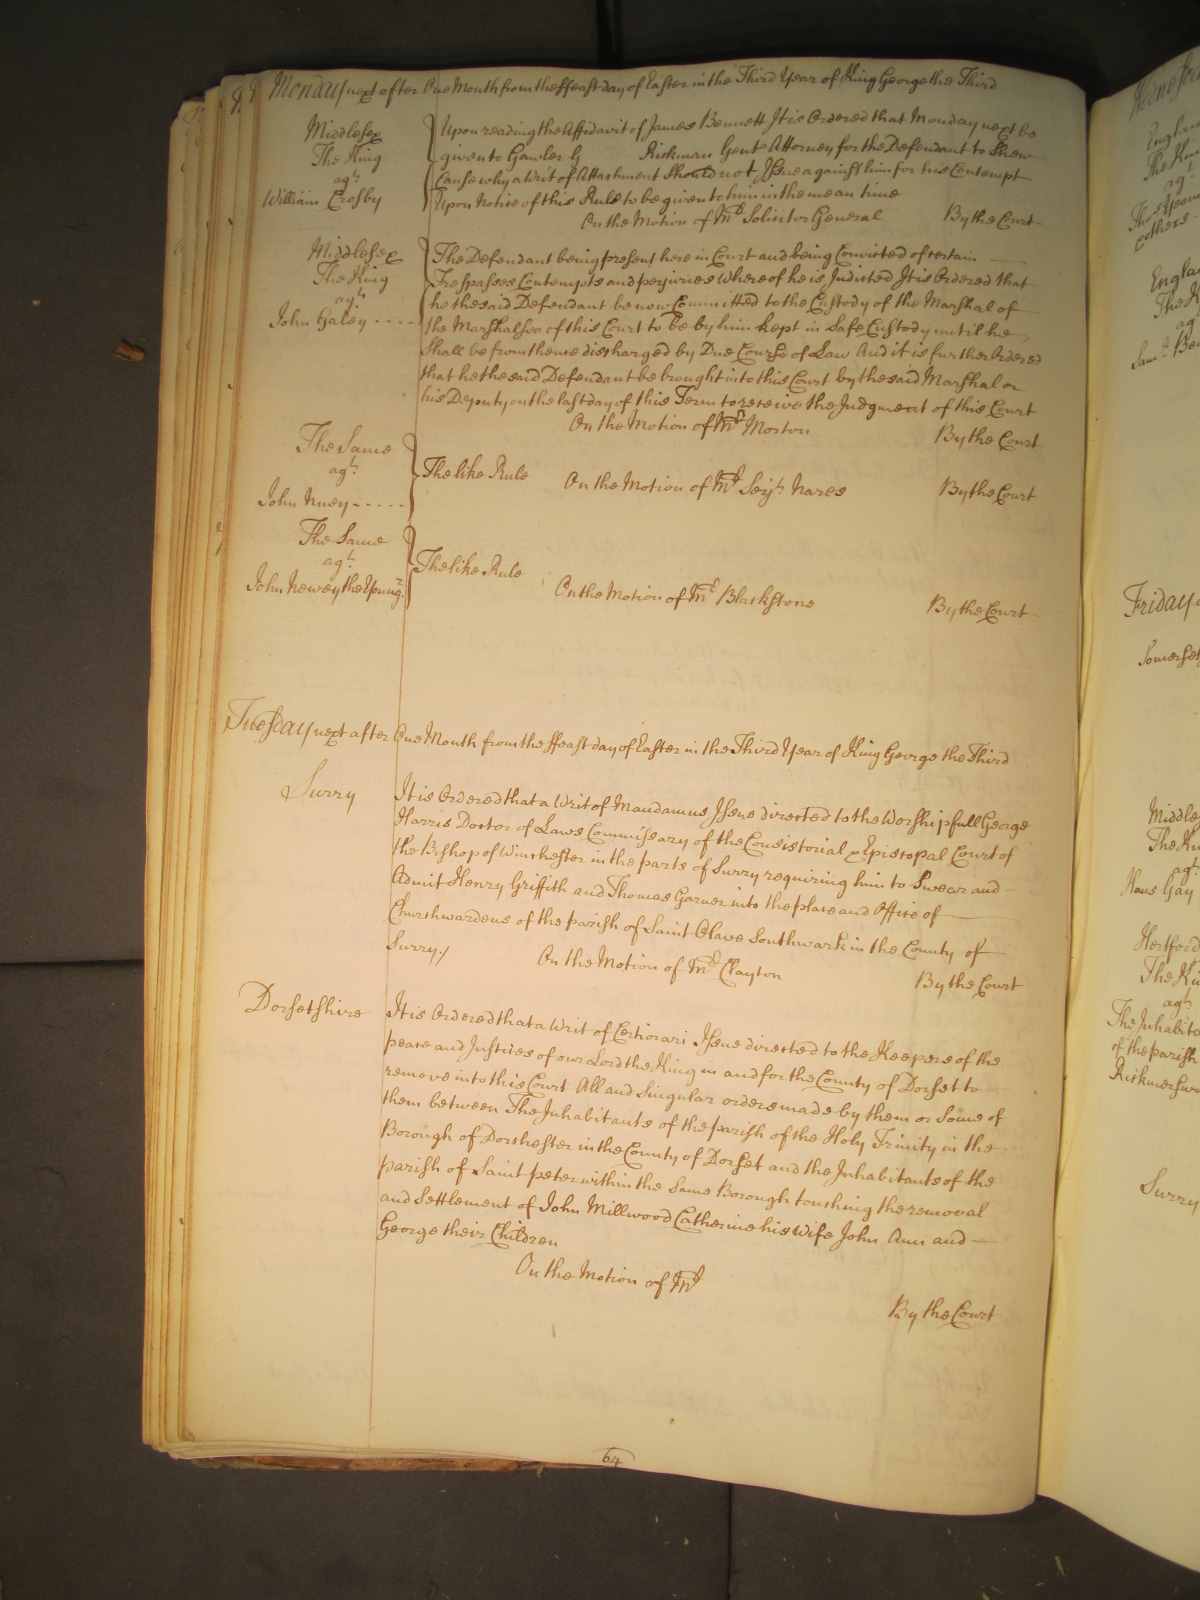 Monday next after One Month from the ffeast day of Easter in the Third Year of King George the Third
Middlesex
The King
agt.
William Crosby
Upon reading the Affidavit of James Bennett It is Ordered that Monday next be
given to Gawler & Rickman Gent. Attorney for the Defendant to Shew
Cause why a Writ of Attachment Should not Issue against him for his Contempt
Upon Notice of this Rule to be given to him in the mean time
On the Motion of Mr. Solicitor General By the Court
Middlesex
The King
agt.
John Haley - - - -
The Defendant being present here in Court and being Convicted of certain
Trespasses Contempts and perjuries whereof he is Indicted It is Ordered that
he the said Defendant be now Committed to the Custody of the Marshal of
the Marshalsea of this Court to be by him kept in Safe Custody until he
Shall be from thence discharged by Due Course of Law And it is further Ordered
that he the said Defendant be brought into this Court by the said Marshal or
his Deputy on the last day of this Term to receive the Judgment of this Court
On the Motion of Mr. Morton By the Court
The Same
agt.
John Nuey - - - - -
The like Rule On the Motion of Mr. Serjt. Nares By the Court
The Same
agt.
John Newey the Youngr.
The like Rule
On the Motion of Mr. Blackstone By the Court
Tuesday next after One Month from the ffeast day of Easter in the Third Year of King George the Third
Surry
It is Ordered that a Writ of Mandamus Issue directed to the Worshipfull George
Harris Doctor of Laws Commissary of the Consistorial & Episcopal Court of
the Bishop of Winchester in the parts of Surry requiring him to Swear and
Admit Henry Griffith and Thomas Garner into the place and Office of
Churchwardens of the parish of Saint Olave Southwark in the County of
Surry./ On the Motion of Mr. Clayton By the Court
Dorsetshire
It is Ordered that a Writ of Certiorari Issue directed to the Keepers of the
peace and Justices of our Lord the King in and for the County of Dorset to
remove into this Court All and Singular orders made by them or Some of
them between The Inhabitants of the parish of the Holy Trinity in the
Borough of Dorchester in the County of Dorset and the Inhabitants of the
parish of Saint peter within the Same Borough touching the removal
and Settlement of John Millwood Catherine his Wife John Ann and
George their Children
On the Motion of Mr.
By the Court
64
Friday
Somerset
Middle
The Ki
agt.
Hans Gay
Hertford
The Ki
agt.
The Inhabita
of the parish
Rickmersw
Surry